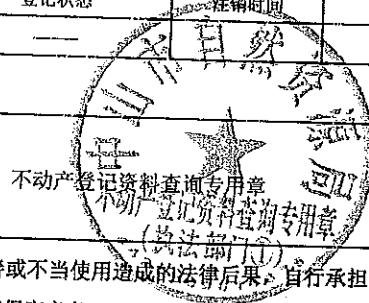 登记状态 注销时间
——
中山市自然资源局
不动产登记资料查询专用章
不动产登记资料查询专用章
(执法部门①)
或不当使用造成的法律后果,自行承担